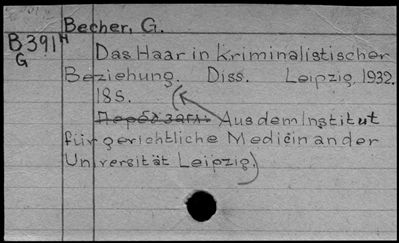 Becher, G.
B391H
G
Das Haar in kriminalistischer
Beziehung. Diss. Leipzig, 1932.
18 S.
(Aus dem Institut
für gerichtliche Medicin an der
Universität Leipzig.)